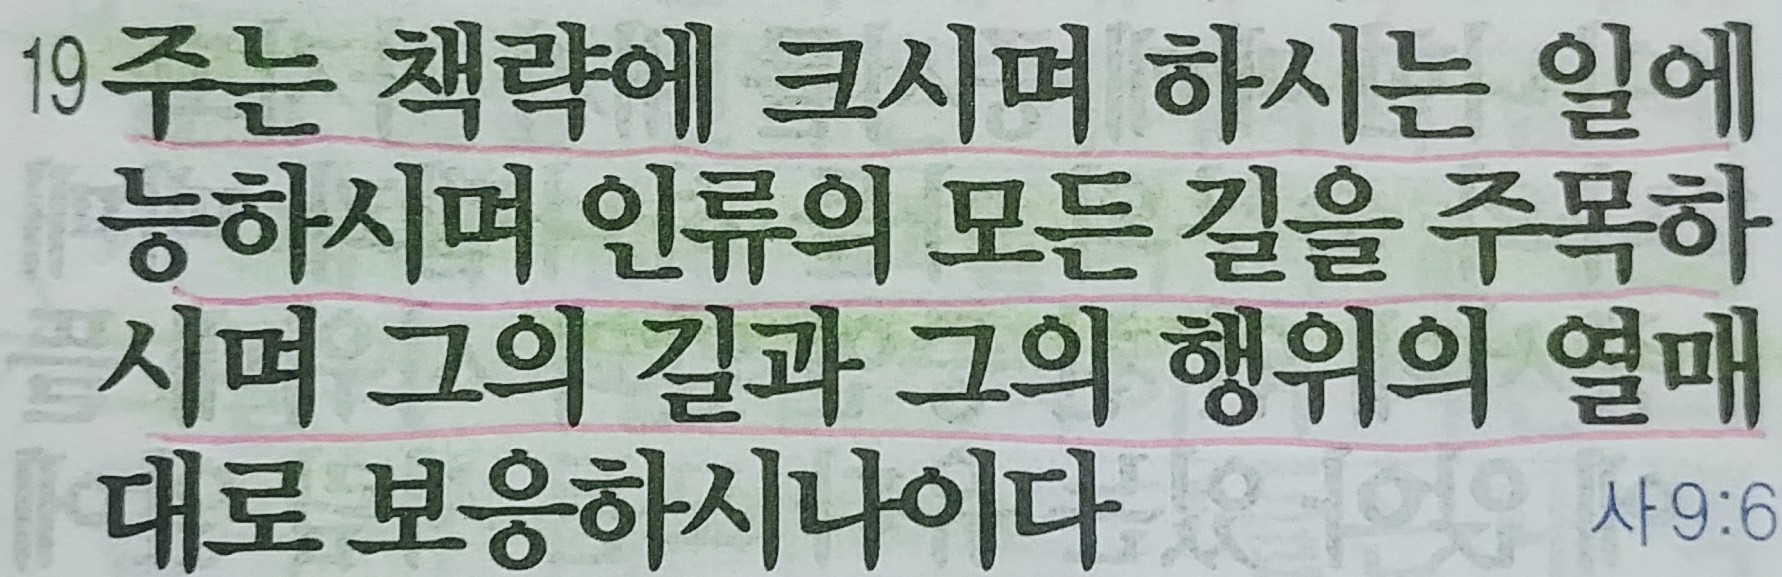 19 주는 책략에 크시며 하시는 일에
능하시며 인류의 모든 길을 주목하
시며 그의 길과 그의 행위의 열매
대로 보응하시나이다 사9:6